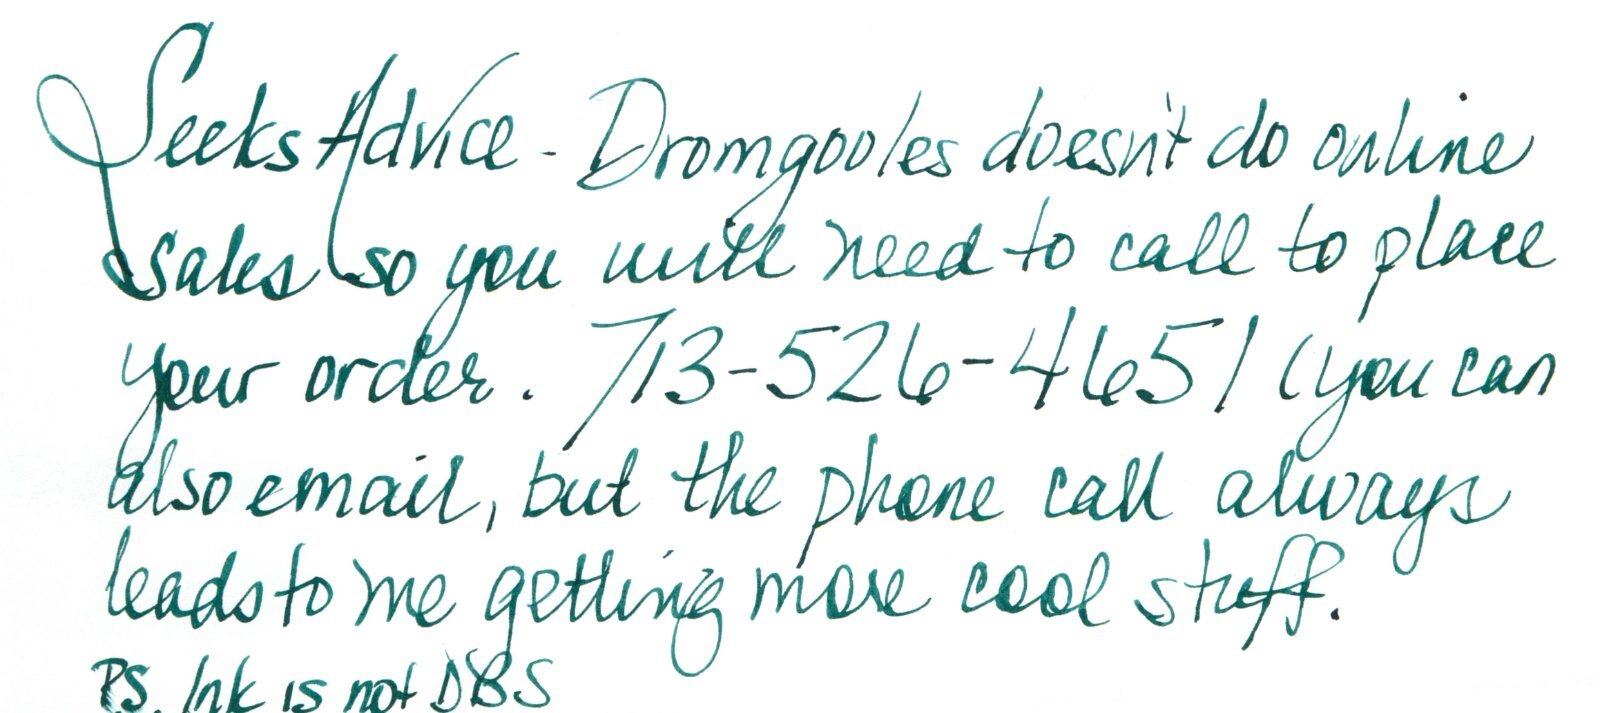 Seeks Advice - Dromgooles doesn't do online
sales so you will need to call to place
your order. 713-526-4651 (you can
also email, but the phone call always
leads to me getting more cool stuff.
PS. Ink is not DBS